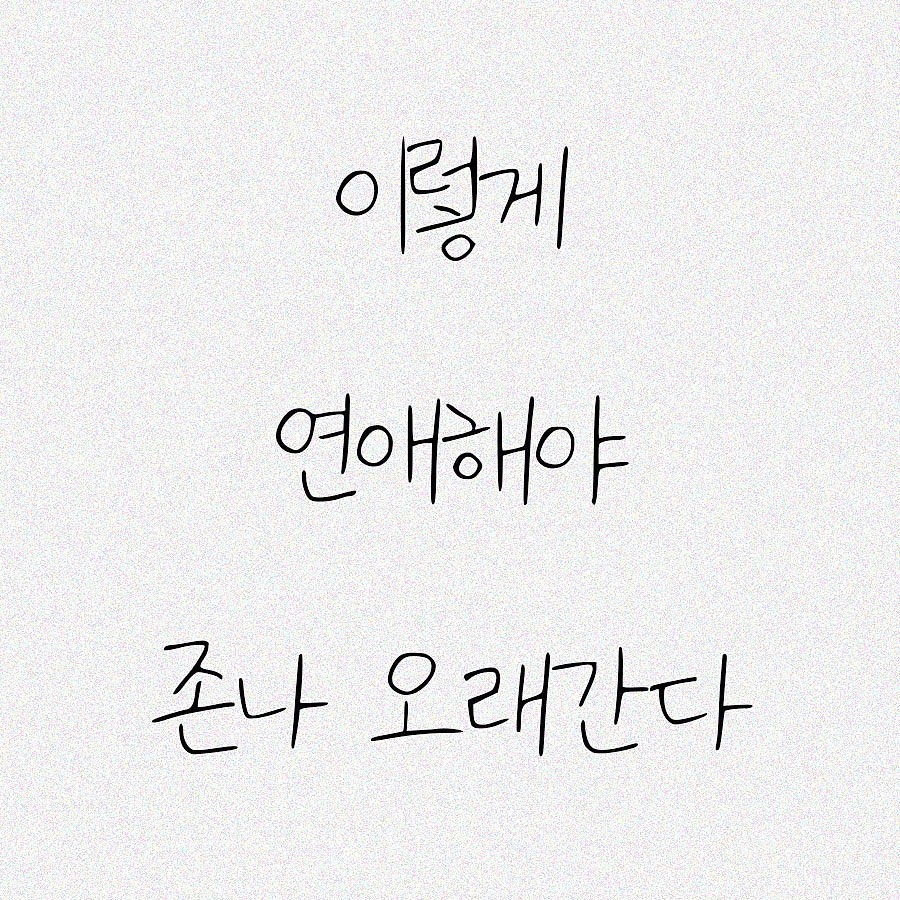 이렇게
연애해야
존나 오래간다